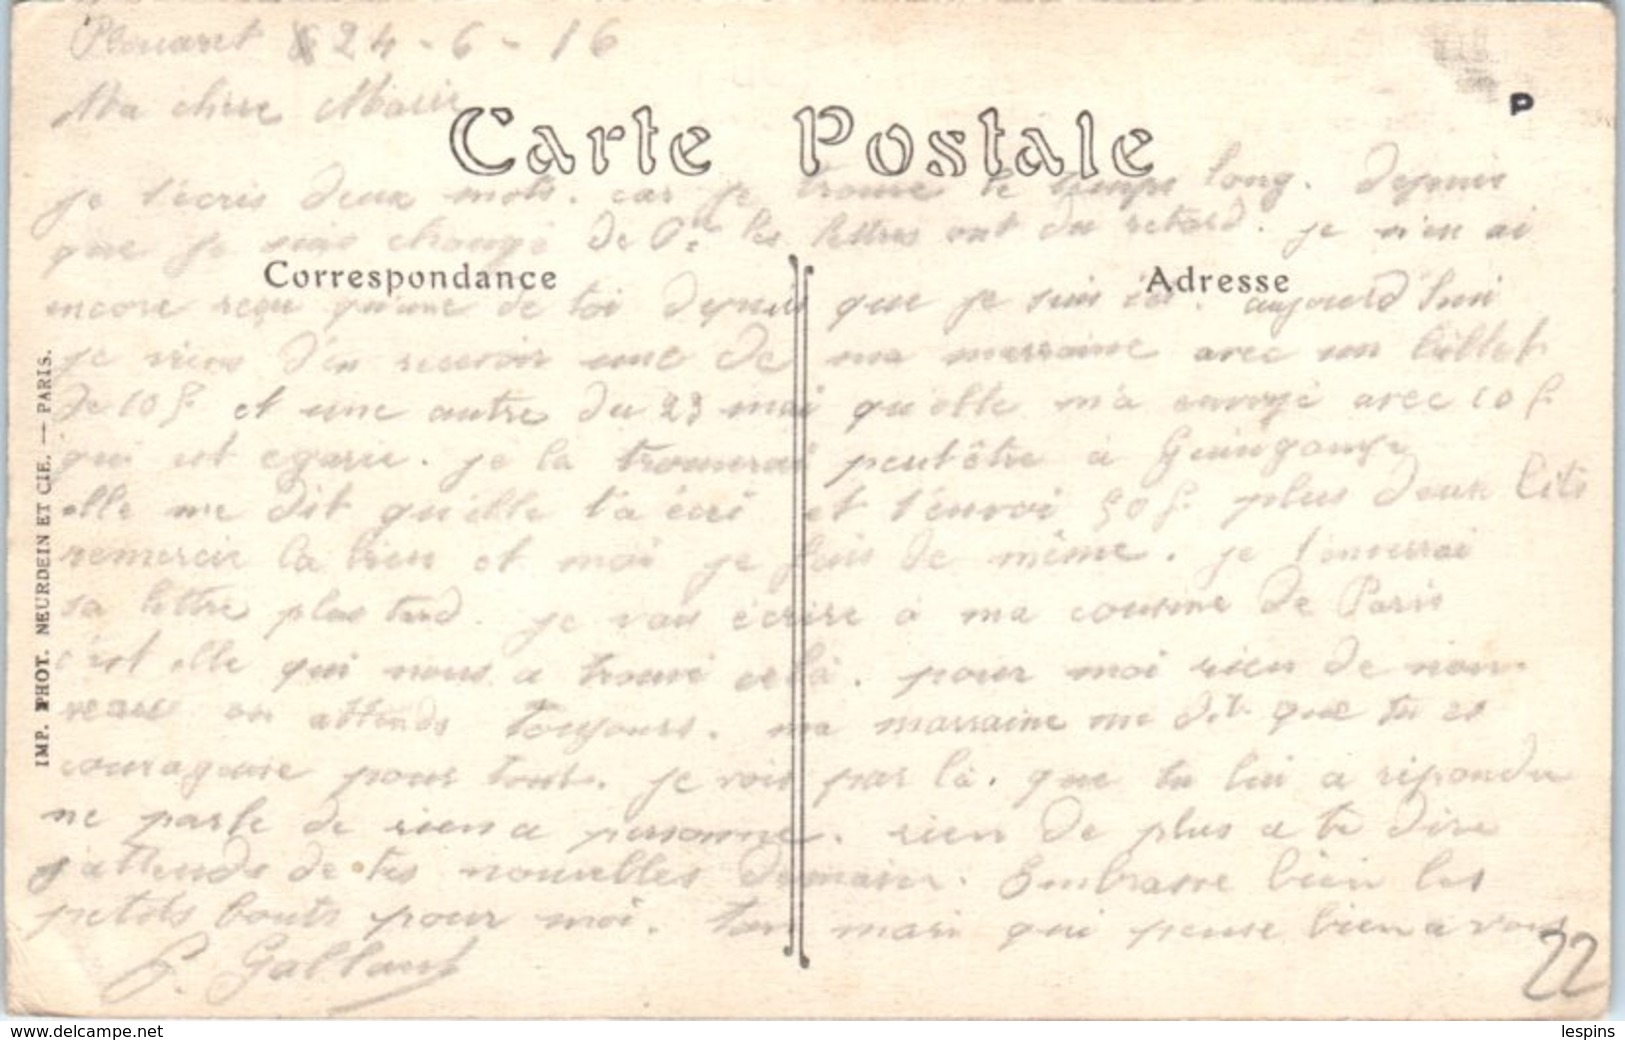 Plouaret 24-6-16
Ma chère Marie
Carte Postale
je t'écris deux mots. car je trouve le temps long. Depuis
que je suis changé de les lettres ont du retard. je n'en ai
Correspondance
Adresse
encore reçu qu'une de toi depuis que je suis ici. aujourd'hui
je viens d'en recevoir une de ma marraine avec un billet
de 10 f. et une autre du 23 mai qu'elle m'a envoyé avec 10 f.
qui est egarée. je la trouverai peutêtre à Guingamp
elle me dit qu'elle t'a écri et t'envoi 50 f. plus deux lits
remercie la bien et moi je fais de même. je t'enverrai
sa lettre plus tard. je vais écrire à ma cousine de Paris
c'est elle qui nous a trouvé cela. pour moi rien de nou-
veau on attends toujours. ma marraine me dit que tu es
courageuse pour tout. je vois par là. que tu lui a répondu
ne parle de rien a personne. rien de plus a te dire
j'attends de tes nouvelles demain. Embrasse bien les
petits bouts pour moi. ton mari qui pense bien a vous
P. Gallant
22
P
IMP. PHOT. NEURDEIN ET CIE. — PARIS.
www.delcampe.net
lespins